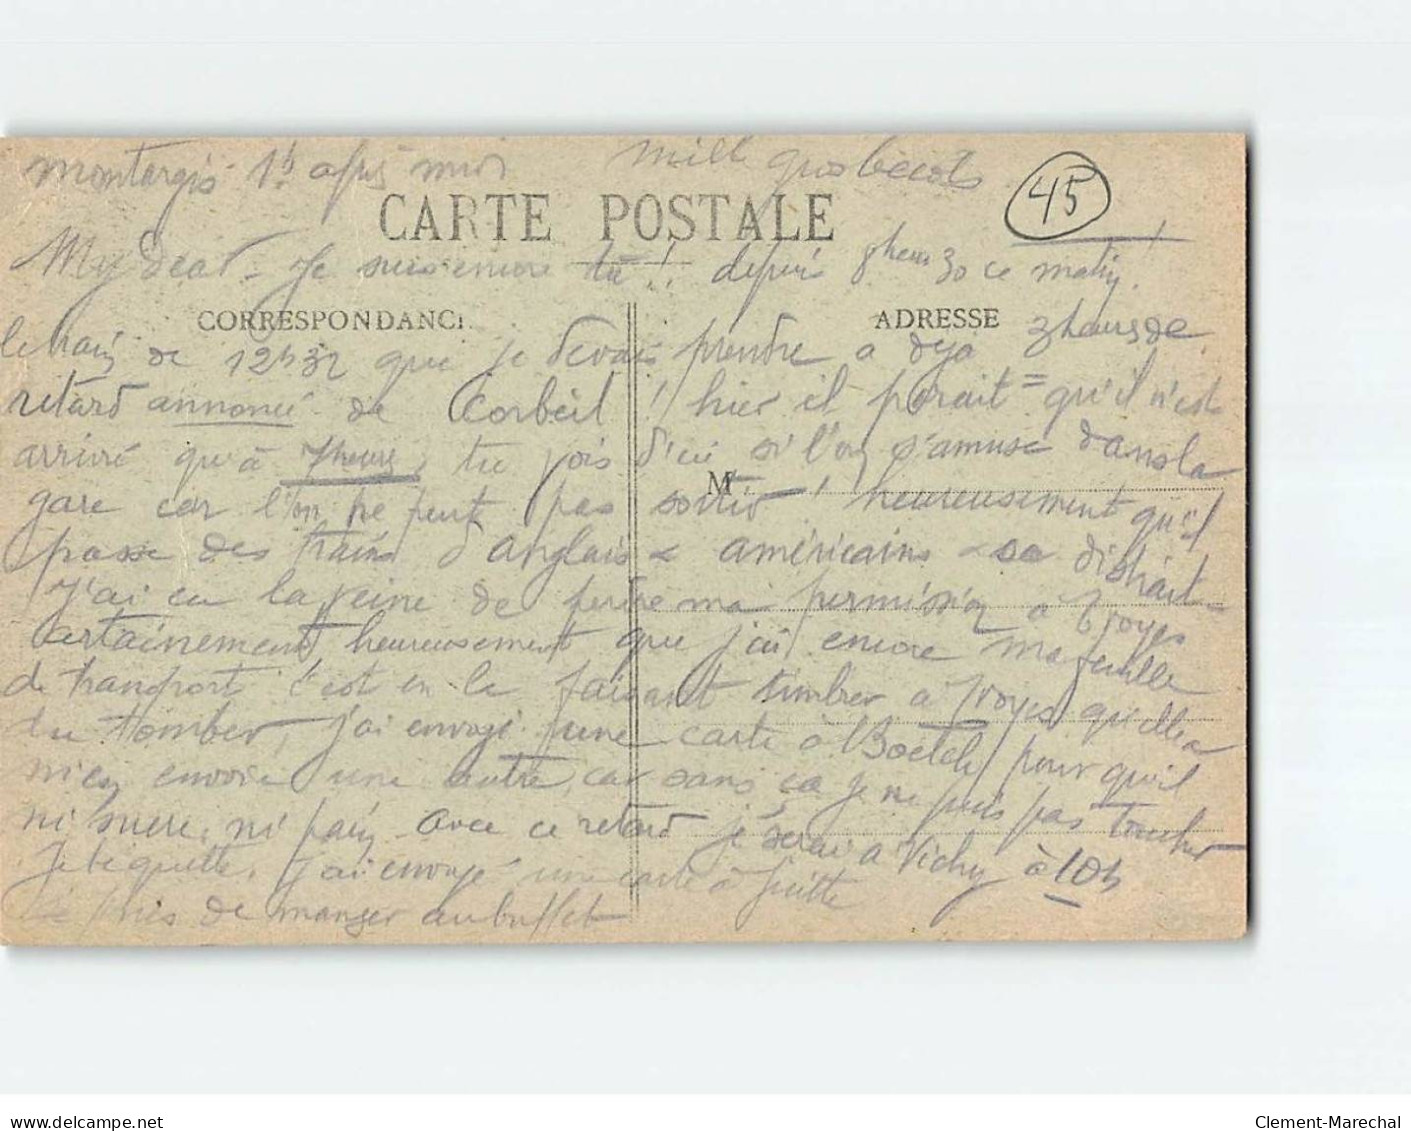 montargis 1h. après midi mill gros bécots
45
CARTE POSTALE
My dear - Je suis encore ici !! depuis 8 heures 30 ce matin !
CORRESPONDANCE
ADRESSE
le train de 12h32 que je devais prendre a deja 3 heures de
retard annoncé de Corbeil ! hier il parait = qu'il n'est
arrivé qu'à 7 heures, tu vois d'ici si l'on s'amuse dans la
M
gare car l'on ne peut pas sortir ! heureusement qu'il
passe des trains d'anglais & américains & sa distrait -
J'ai eu la veine de perdre ma permission à Troyes
certainement heureusement que j'ai encore ma feuille
de transport c'est en la faisant timbrer à Troyes qu'elle a
du tomber, j'ai envoyé une carte à Boetch pour qu'il
m'en envoie une autre, car sans ça je ne puis pas toucher
ni sucre, ni pain avec ce retard je serai a Vichy à 10h
Je béquette, j'ai envoyé une carte à
Je puis de manger au buffet
www.delcampe.net
Clement-Marechal